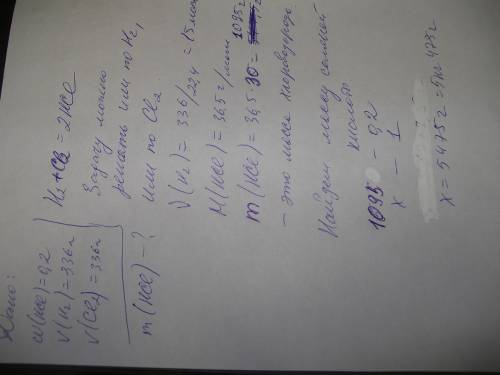 Дано:
w(HCl)=0,2
V(H₂)=336л
V(Cl₂)=336л
m(HCl)-?
H₂+Cl₂=2HCl
Задачу можно
решать или по H₂,
или по Cl₂
V(H₂)=336/22,4=15моль
M(HCl)=36,5г/моль
m(HCl)=36,5 30= 1095г
- это масса хлороводорода
Найдем массу соляной
кислоты
1095 - 0,2
x - 1
x=5475г=5кг 475г